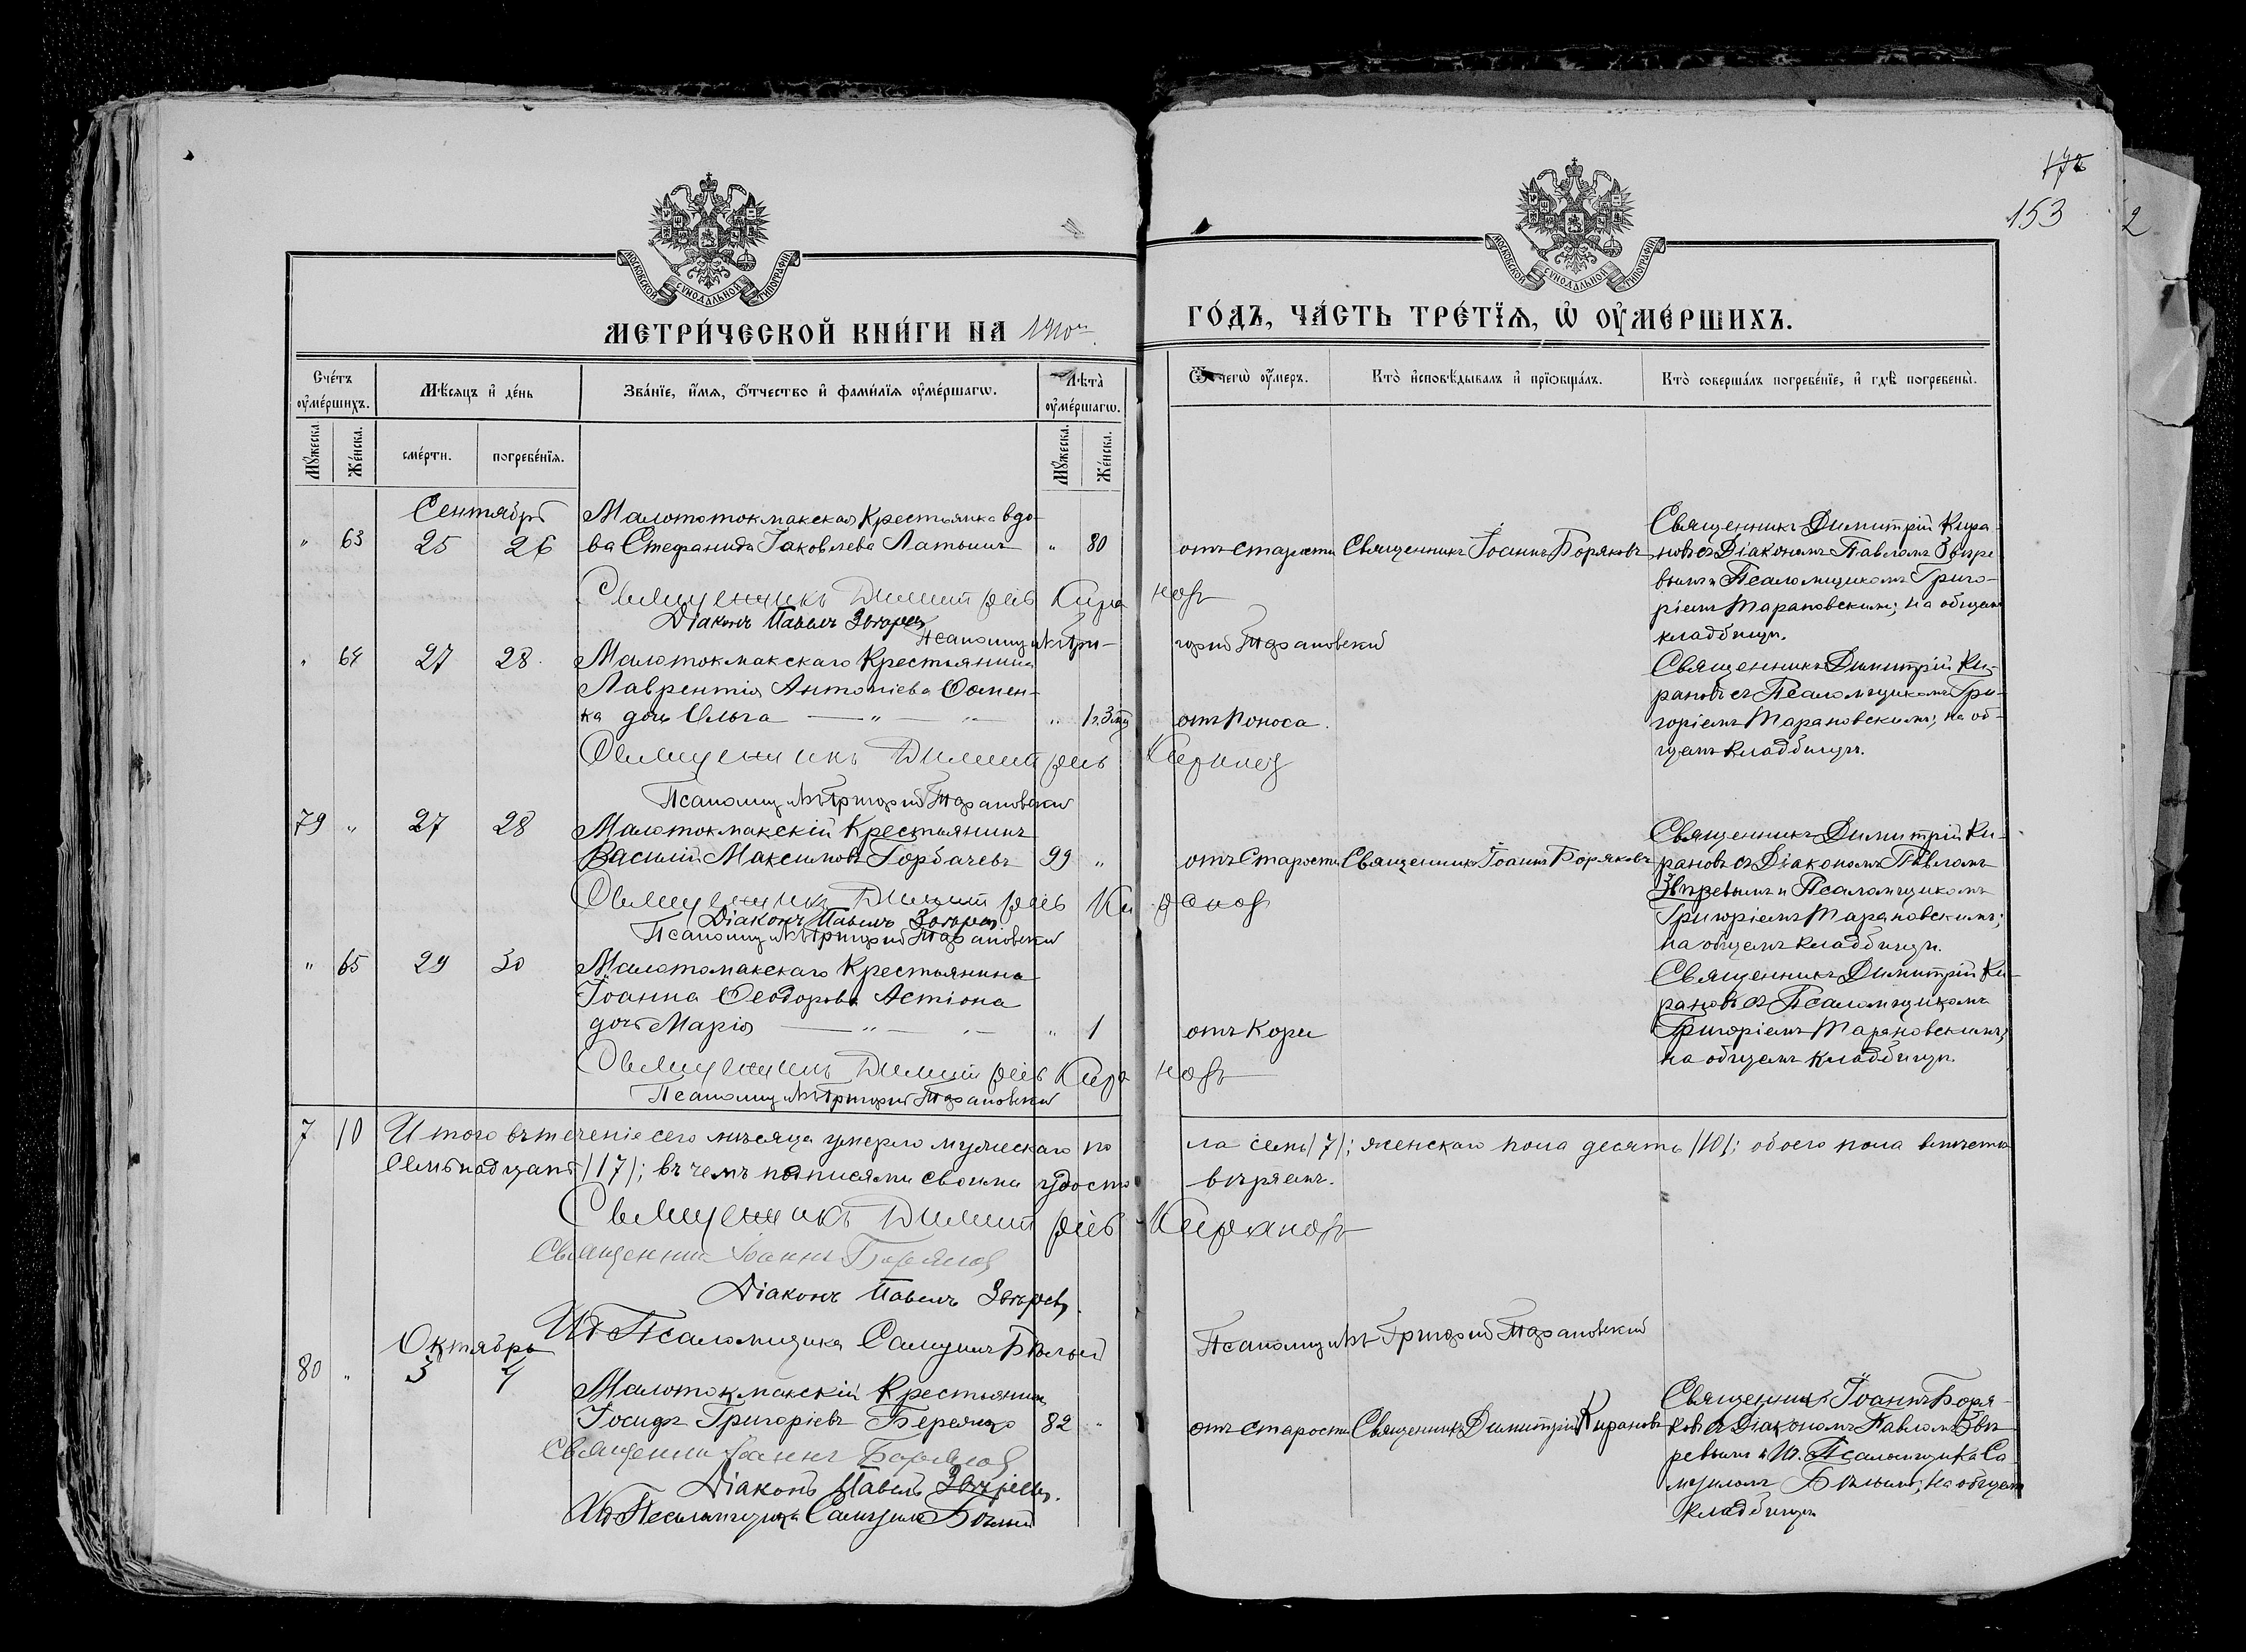 172
153
2
МОСКОВСКОЙ СѴНОДАЛЬНОЙ ТИПОГРАФІИ
МОСКОВСКОЙ СѴНОДАЛЬНОЙ ТИПОГРАФІИ
МЕТРИ́ЧЕСКОЙ КНИ́ГИ НА 1910й
ГО́ДЪ, ЧА́СТЬ ТРЕ́ТЇѦ, Ѡ ОУ҆МЕ́РШИХЪ.
Сче́тъ оу҆ме́ршихъ.
Мѣ́сяцъ и҆ де́нь
Зва́нїе, и҆́мѧ, ѻ҆́тчество и҆ фами́лїѧ оу҆ме́ршагѡ.
Лѣта̀ оу҆ме́ршагѡ.
Ѿ чегѡ̀ оу҆́меръ.
Кто̀ и҆сповѣ́дывалъ и҆ прїѡбща́лъ.
Кто̀ соверша́лъ погребе́нїе, и҆ гдѣ̀ погребены̀.
Мꙋ́жеска.
Же́нска.
сме́рти.
погребе́нїѧ.
Мꙋ́жеска.
Же́нска.
Сентябрь
Малотокмакская Крестьянка вдо-
" 63 25 26 ва Стефанида Іаковлева Латышъ " 80 отъ старости Священникъ Іоаннъ Боряковъ
Священникъ Димитрій Кира-
новъ съ Діакономъ Павломъ Звѣре-
вымъ и Псаломщикомъ Григо-
ріемъ Тарановскимъ; на общемъ
кладбищѣ.
Священникъ Димитрій Киранов
Діаконъ Павелъ Звѣревъ
Псаломщикъ Григорій Тарановский
" 64 27 28 Малотокмакскаго Крестьянина
Лаврентія Антоніева
ка дочь Ольга — " — " — " отъ поноса.
Священникъ Димитрій Ки-
рановъ съ Псаломщикомъ Гри-
горіемъ Тарановскимъ; на об-
щемъ кладбищѣ.
Священникъ Димитрій Киранов
Псаломщикъ Григорий Тарановский
79 " 27 28 Малотокмакскій Крестьянинъ
Василій Максимовъ Горбачевъ 99 " отъ старости Священникъ Іоаннъ Боряковъ
Священникъ Димитрій Ки-
рановъ съ Діакономъ Павломъ
Звѣревымъ и Псаломщикомъ
Григоріемъ Тарановскимъ;
на общемъ кладбищѣ.
Священникъ Димитрій Киранов
Діаконъ Павелъ Звѣревъ
Псаломщикъ Григорий Тарановский
" 65 29 30 Малотомакскаго Крестьянина
Іоанна Ѳеодорова Астіона
дочь Марія — " — " — " 1 отъ кори
Священникъ Димитрій Ки-
рановъ съ Псаломщикомъ
Григоріемъ Тарановскимъ;
на общемъ кладбищѣ.
Священникъ Димитрій Киранов
Псаломщикъ Григорий Тарановский
7 10 Итого въ теченіе сего мѣсяца умерло мужескаго пола семь (7); женскаго пола десять (10); обоего пола вмѣстѣ
семьнадцать (17); въ чемъ подписями своими удостовѣряемъ.
Священникъ Димитрій Киранов
Священник Іоаннъ Боряков
Діаконъ Павелъ Звѣревъ.
И д Псаломщика Самуилъ Бѣлый
Псаломщикъ Григорий Тарановский
Октябрь
80 " 3 4
Малотокмакскій Крестьянинъ
Іосифъ Григорієвъ 82 " отъ старости Священникъ Димитрій Кирановъ
Священникъ Іоаннъ Боря-
ковъ съ Діакономъ Павломъ Звѣ-
ревымъ и И. д. Псаломщика Са-
муиломъ Бѣлымъ; на общемъ
кладбищѣ
Священник Іоаннъ Боряков
Діаконъ Павелъ Звѣревъ.
И д Псаломщика Самуилъ Бѣлый